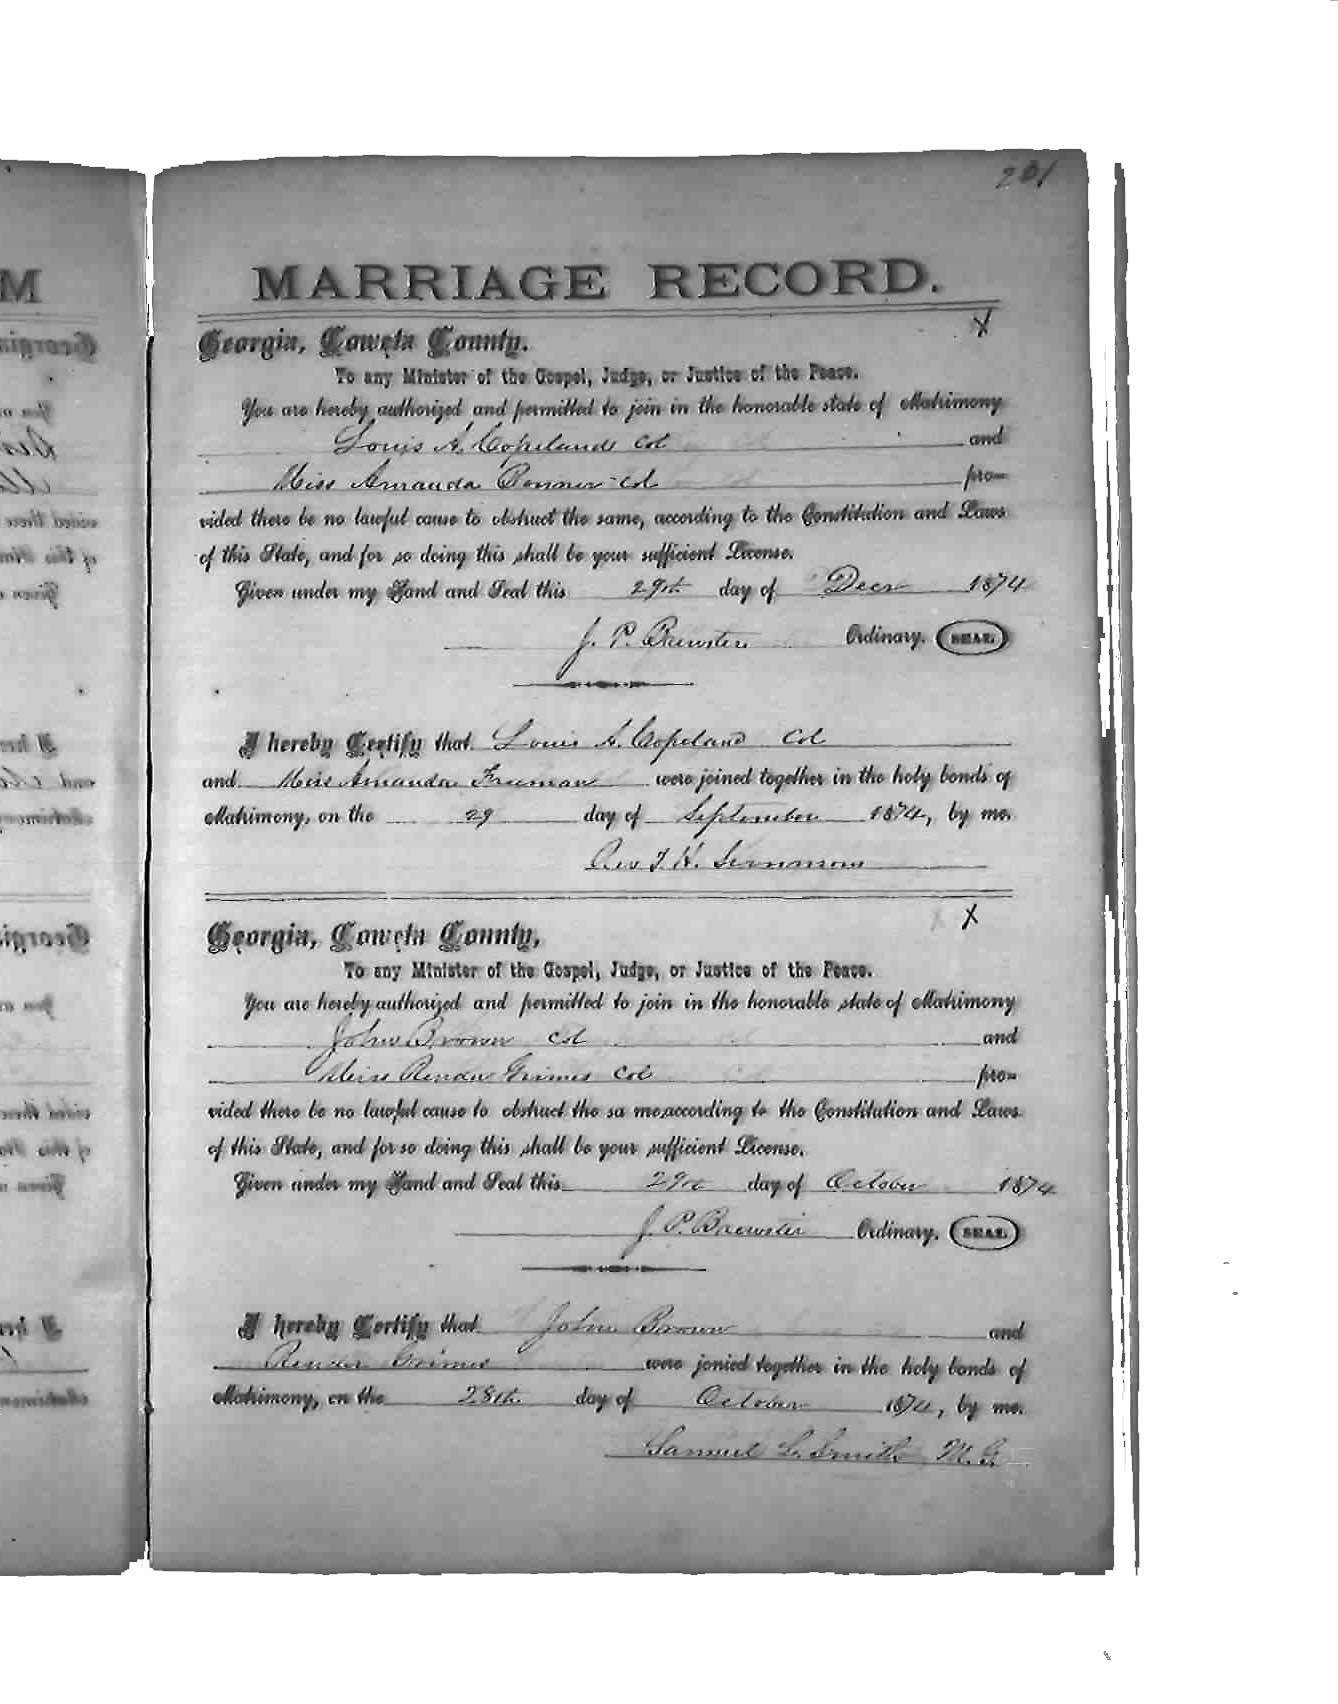 201
MARRIAGE RECORD.
X
Georgia, Coweta County.
To any Minister of the Gospel, Judge, or Justice of the Peace.
You are hereby authorized and permitted to join in the honorable state of Matrimony
Louis A. Copeland Col and
Miss Amanda Col pro-
vided there be no lawful cause to obstruct the same, according to the Constitution and Laws
of this State, and for so doing this shall be your sufficient License.
Given under my Hand and Seal this 29th day of Decr 1874
J. P. Brewster Ordinary. SEAL.
I hereby Certify that Louis A. Copeland Col
and Miss Amanda Freeman were joined together in the holy bonds of
Matrimony, on the 29 day of September 1874, by me.
Rev T. H. Simmons
X
Georgia, Coweta County,
To any Minister of the Gospel, Judge, or Justice of the Peace.
You are hereby authorized and permitted to join in the honorable state of Matrimony
John Brown Col and
Miss Render Grimes Col pro-
vided there be no lawful cause to obstruct the sa me,according to the Constitution and Laws
of this State, and for so doing this shall be your sufficient License.
Given under my Hand and Seal this 29th day of October 1874
J. P. Brewster Ordinary. SEAL.
I hereby Certify that John Brown and
Render Grimes were jonied together in the holy bonds of
Matrimony, on the 28th day of October 1874, by me.
Samuel G. Smith M. G.